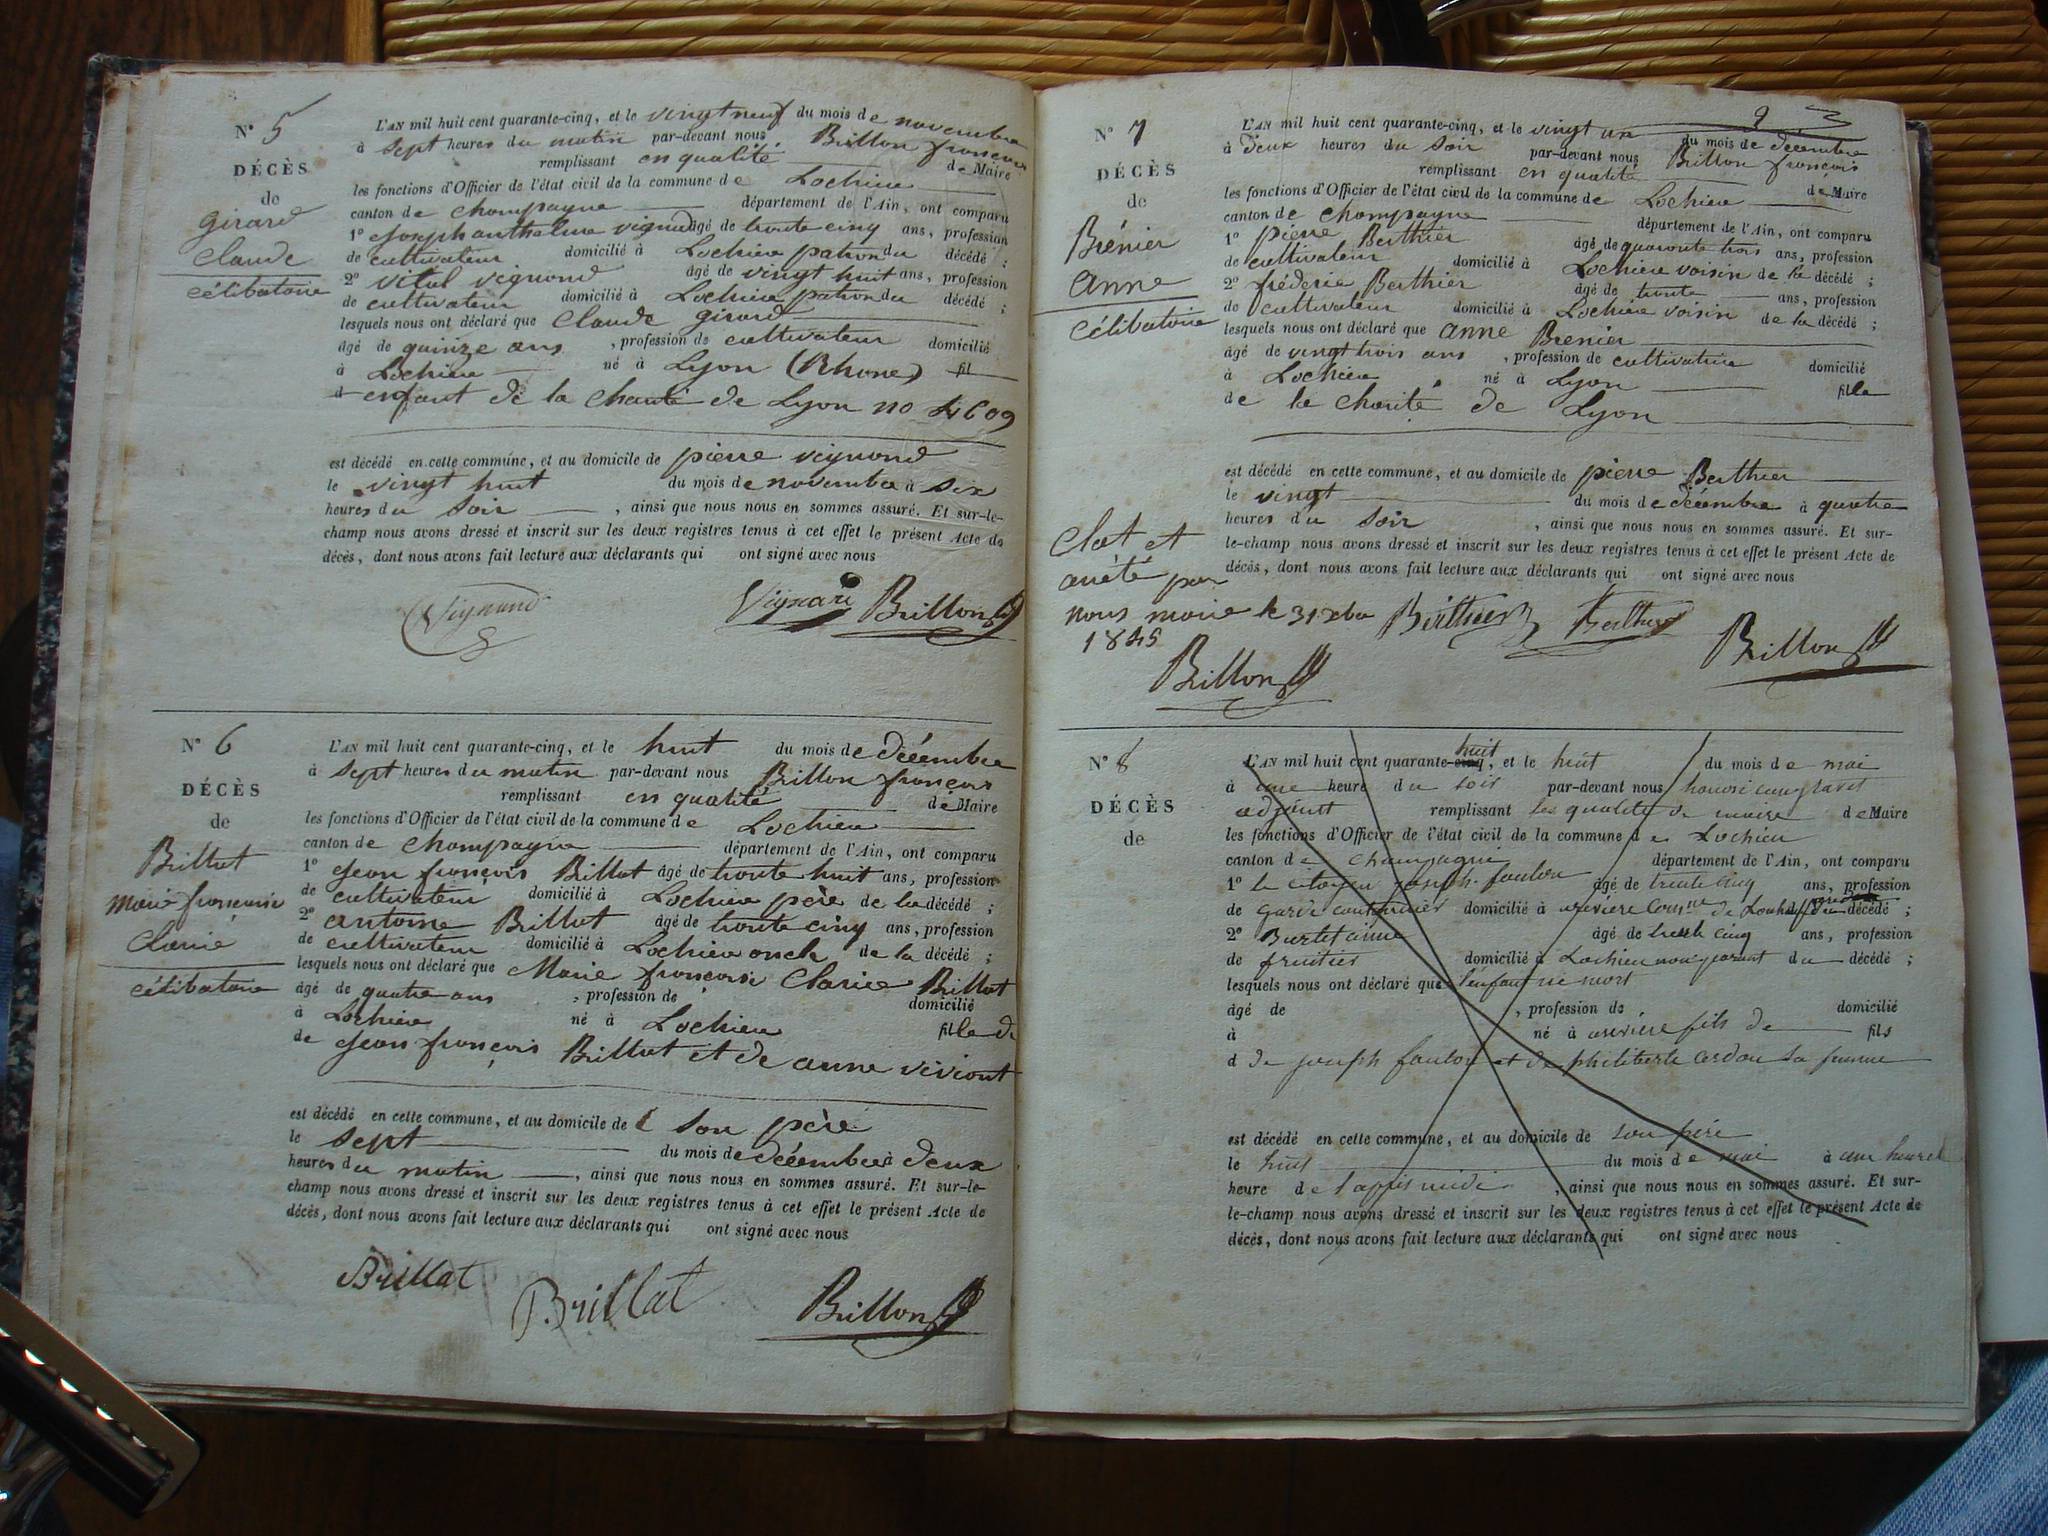 N° 5
DÉCÈS
de
Girard
Claude
célibataire
L'AN mil huit cent quarante-cinq, et le vingt neuf du mois de novembre
à sept heures du matin par-devant nous Brillon françois
remplissant en qualité de Maire
les fonctions d'Officier de l'état civil de la commune de Lochieu
canton de Champagne département de l'Ain, ont comparu
1° Joseph anthelme vignand âgé de trente cinq ans, profession
de cultivateur domicilié à Lochieu patron du décédé ;
2° vital vignand âgé de vingt huit ans, profession
de cultivateur domicilié à Lochieu patron du décédé ;
lesquels nous ont déclaré que Claude girard
âgé de quinze ans , profession de cultivateur domicilié
à Lochieu né à Lyon (Rhone) fil
d enfant de la charité de Lyon no 44609
est décédé en cette commune, et au domicile de pierre vignand
le vingt huit du mois de novembre à six
heures du soir , ainsi que nous nous en sommes assuré. Et sur-le-
champ nous avons dressé et inscrit sur les deux registres tenus à cet effet le présent Acte de
décès, dont nous avons fait lecture aux déclarants qui ont signé avec nous
Vignand Vignand Brillon
N° 6
DÉCÈS
de
Brillat
marie françoise
Clarice
célibataire
L'AN mil huit cent quarante-cinq, et le huit du mois de décembre
à sept heures du matin par-devant nous Brillon françois
remplissant en qualité de Maire
les fonctions d'Officier de l'état civil de la commune de Lochieu
canton de Champagne département de l'Ain, ont comparu
1° Jean françois Brillat âgé de trente huit ans, profession
de cultivateur domicilié à Lochieu père de la décédé ;
2° antoine Brillat âgé de trente cinq ans, profession
de cultivateur domicilié à Lochieu oncle de la décédé ;
lesquels nous ont déclaré que Marie françoise Clarice Brillat
âgé de quatre ans , profession de domicilié
à Lochieu né à Lochieu fille de
de Jean françois Brillat et de anne viviant
est décédé en cette commune, et au domicile de son père
le sept du mois de décembre à deux
heures du matin , ainsi que nous nous en sommes assuré. Et sur-le-
champ nous avons dressé et inscrit sur les deux registres tenus à cet effet le présent Acte de
décès, dont nous avons fait lecture aux déclarants qui ont signé avec nous
Brillat Brillat Brillon
N° 7
DÉCÈS
de
Brénier
anne
célibataire
L'AN mil huit cent quarante-cinq, et le vingt un du mois de décembre
à deux heures du soir par-devant nous Brillon françois
remplissant en qualité de Maire
les fonctions d'Officier de l'état civil de la commune de Lochieu
canton de Champagne département de l'Ain, ont comparu
1° pierre Berthier âgé de quarante trois ans, profession
de cultivateur domicilié à Lochieu voisin de la décédé ;
2° fréderic Berthier âgé de trente ans, profession
de cultivateur domicilié à Lochieu voisin de la décédé ;
lesquels nous ont déclaré que anne Brenier
âgé de vingt trois ans , profession de cultivatrice domicilié
à Lochieu né à Lyon fille
de la charité de Lyon
est décédé en cette commune, et au domicile de pierre Berthier
le vingt du mois de décembre à quatre
heures du soir , ainsi que nous nous en sommes assuré. Et sur-
le-champ nous avons dressé et inscrit sur les deux registres tenus à cet effet le présent Acte de
décès, dont nous avons fait lecture aux déclarants qui ont signé avec nous
Clot et
arrêté par
nous maire le 31 xbre
1845
Berthier Berthier Brillon
Brillon
N° 8
DÉCÈS
de
huit
L'AN mil huit cent quarante-cinq, et le huit du mois de mai
à une heure du soir par-devant nous
adjoint remplissant les qualité de maire de Maire
les fonctions d'Officier de l'état civil de la commune de Lochieu
canton de Champagne département de l'Ain, ont comparu
1° le citoyen joseph foulon âgé de trente cinq ans, profession
de garde domicilié à de décédé ;
2° âgé de trente cinq ans, profession
de fruitier domicilié à Lochieu non parent du décédé ;
lesquels nous ont déclaré que l'enfant né mort
âgé de , profession de domicilié
à né à fils de fils
d de joseph foulon et de philiberte cardon sa femme
est décédé en cette commune, et au domicile de son père
le huit du mois de mai à une heure
heure de l'apprès midi , ainsi que nous nous en sommes assuré. Et sur-
le-champ nous avons dressé et inscrit sur les deux registres tenus à cet effet le présent Acte de
décès, dont nous avons fait lecture aux déclarants qui ont signé avec nous